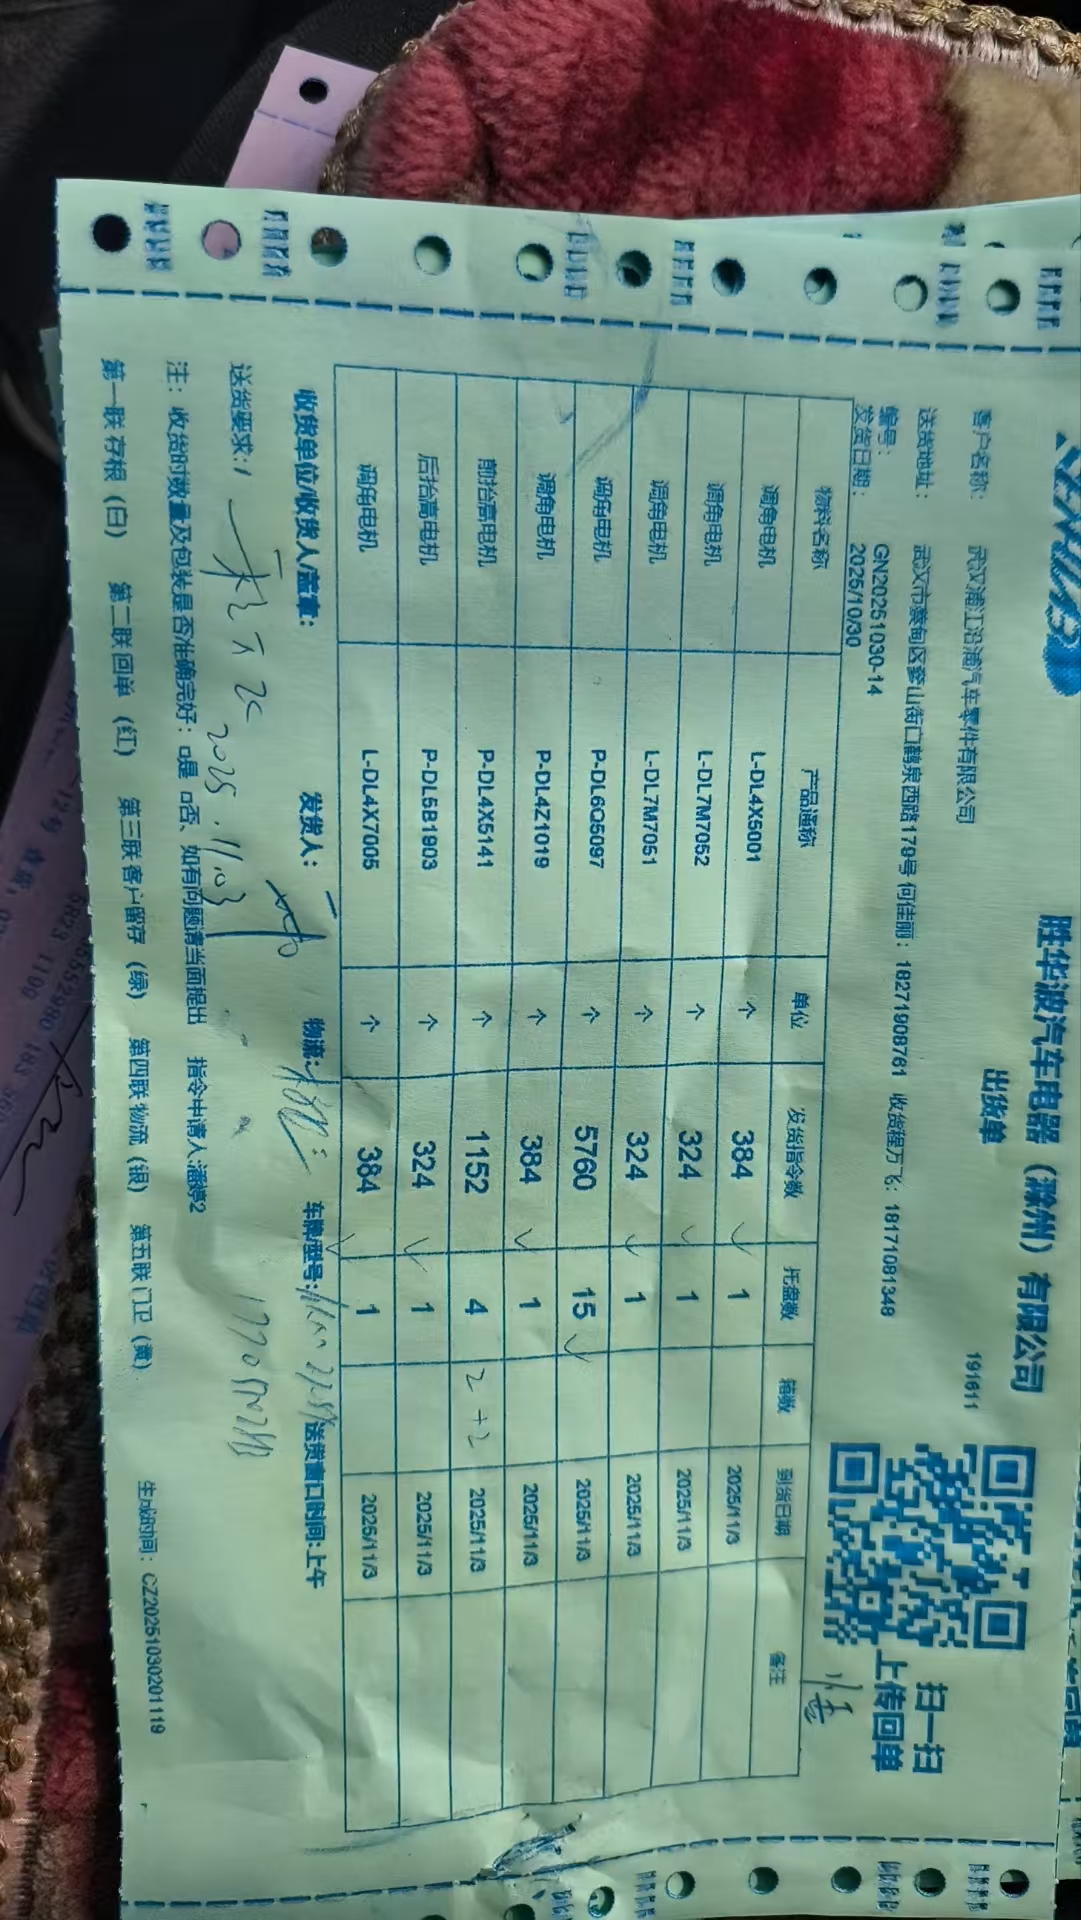 胜华波汽车电器（滁州）有限公司
出货单
191611
扫一扫
上传回单
客户名称： 武汉浦江沿浦汽车零件有限公司
送货地址： 武汉市蔡甸区奓山街口鹤泉西路179号 何佳丽：18271908761 收货程万飞：18171081348
编号： GN20251030-14
发货日期： 2025/10/30
物料名称 产品通称 单位 发货指令数 托盘数 箱数 到货日期 备注
调角电机 L-DL4X5001 个 384 1 2025/11/3
调角电机 L-DL7M7052 个 324 1 2025/11/3
调角电机 L-DL7M7051 个 324 1 2025/11/3
调角电机 P-DL6Q5097 个 5760 15 2025/11/3
调角电机 P-DL4Z1019 个 384 1 2025/11/3
前抬高电机 P-DL4X5141 个 1152 4 2+2 2025/11/3
后抬高电机 P-DL5B1903 个 324 1 2025/11/3
调角电机 L-DL4X7005 个 384 1 2025/11/3
收货单位/收货人/盖章： 发货人： 物流： 车牌/型号： 送货窗口时间:上午
送货要求:/
2025.11.03
注：收货时数量及包装是否准确完好：□是 □否、如有问题请当面提出 指令申请人:潘婷2
第一联 存根（白） 第二联 回单（红） 第三联 客户留存（绿） 第四联 物流（银） 第五联 门卫（黄）
生成时间：CZ20251030201119